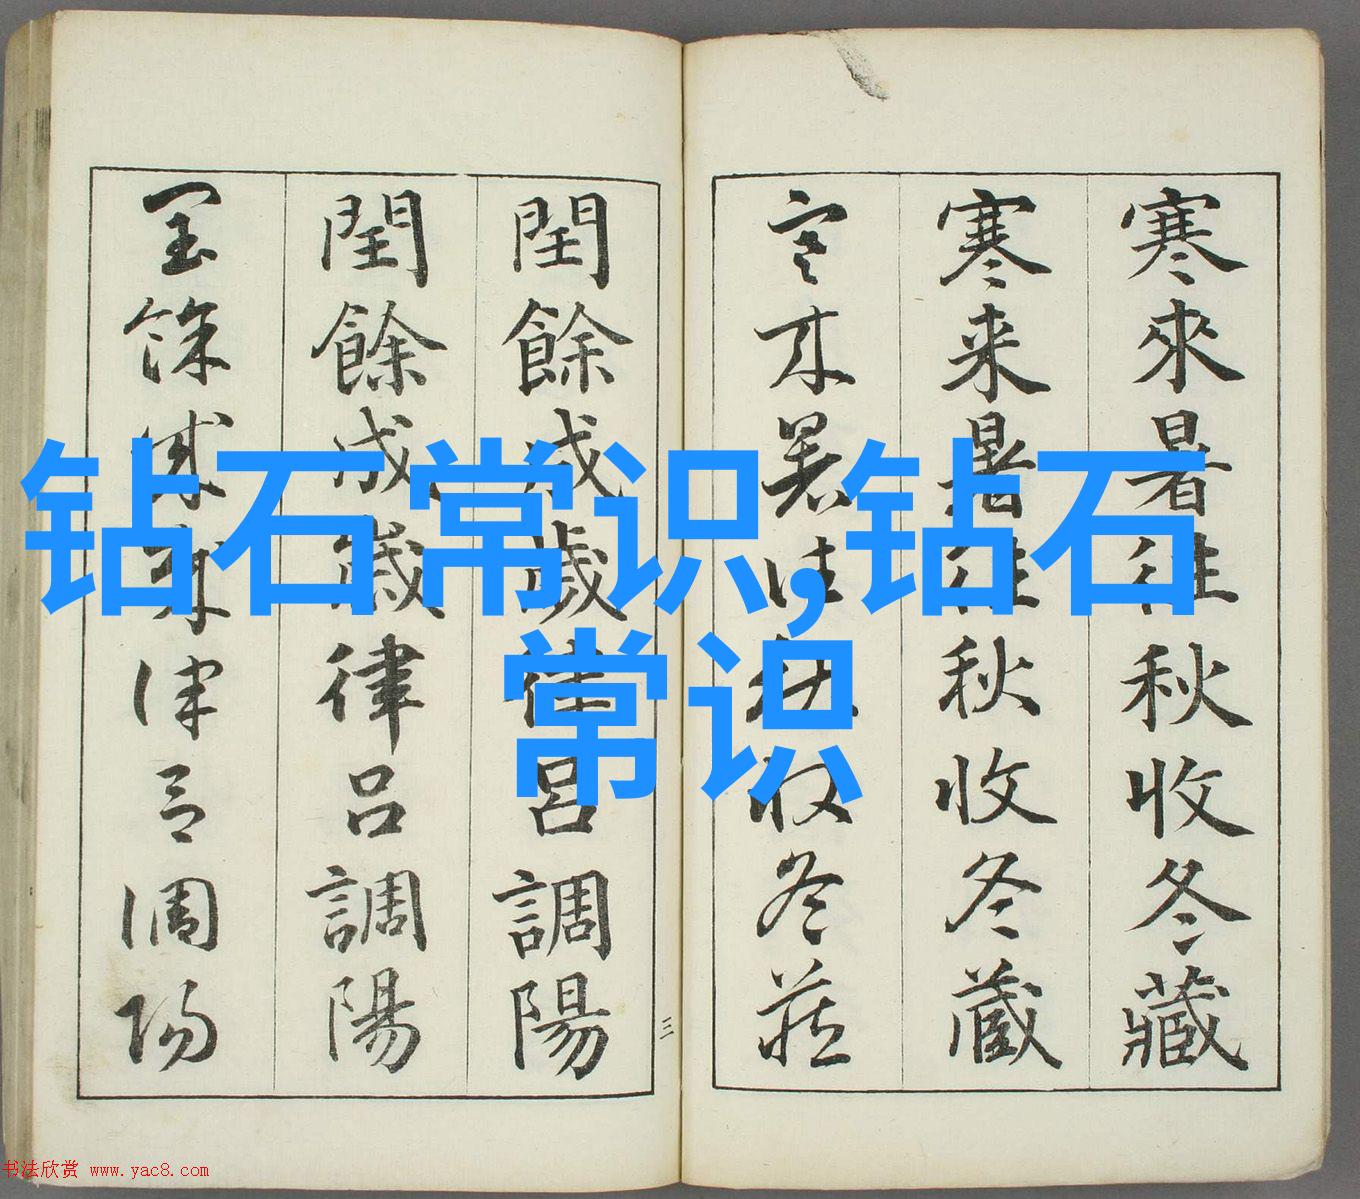 寒來暑往秋收冬藏
寒来暑往秋收冬藏
寒来暑往秋收冬藏
三
閏餘成歲律呂調陽
閏餘成歲律呂調陽
閏餘成歲律呂調陽
钻石常识,钻石
常识
书法欣赏 www.yac8.com